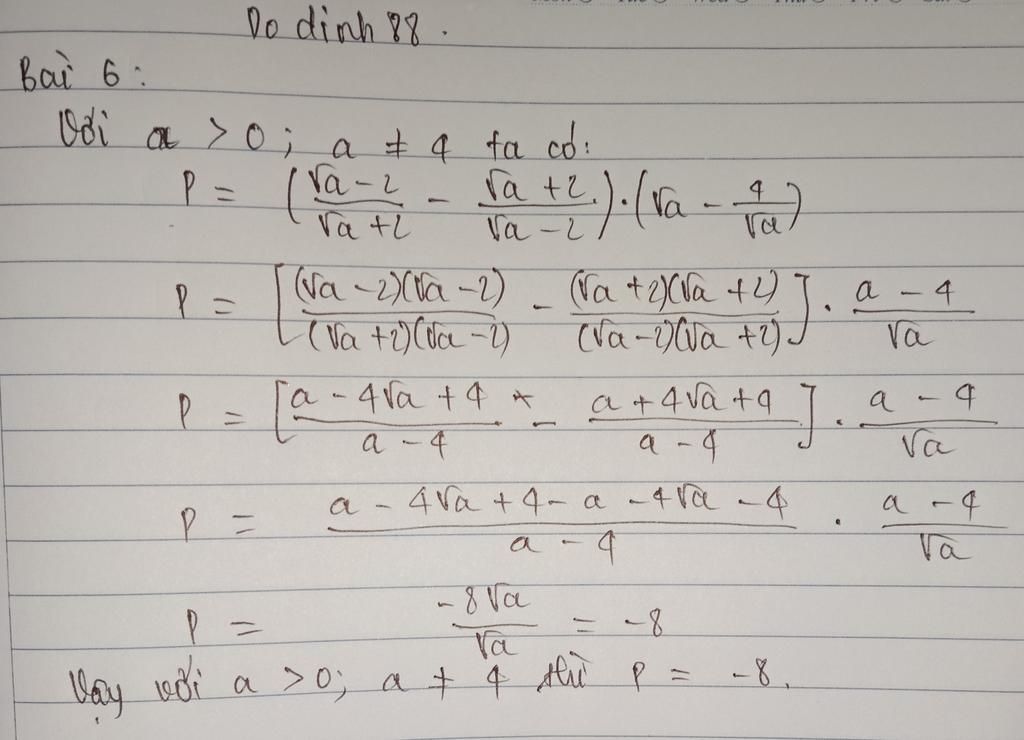 Do dinh 88.
Bài 6:
Với a > 0; a ≠ 4 ta có:
P = (√a - 2 / √a + 2 - √a + 2 / √a - 2) · (√a - 4 / √a)
P = [(√a - 2)(√a - 2) / (√a + 2)(√a - 2) - (√a + 2)(√a + 2) / (√a - 2)(√a + 2)] · a - 4 / √a
P = [a - 4√a + 4 / a - 4 - a + 4√a + 4 / a - 4] · a - 4 / √a
P = a - 4√a + 4 - a - 4√a - 4 / a - 4 · a - 4 / √a
P = -8√a / √a = -8
Vậy với a > 0; a ≠ 4 thì P = -8.